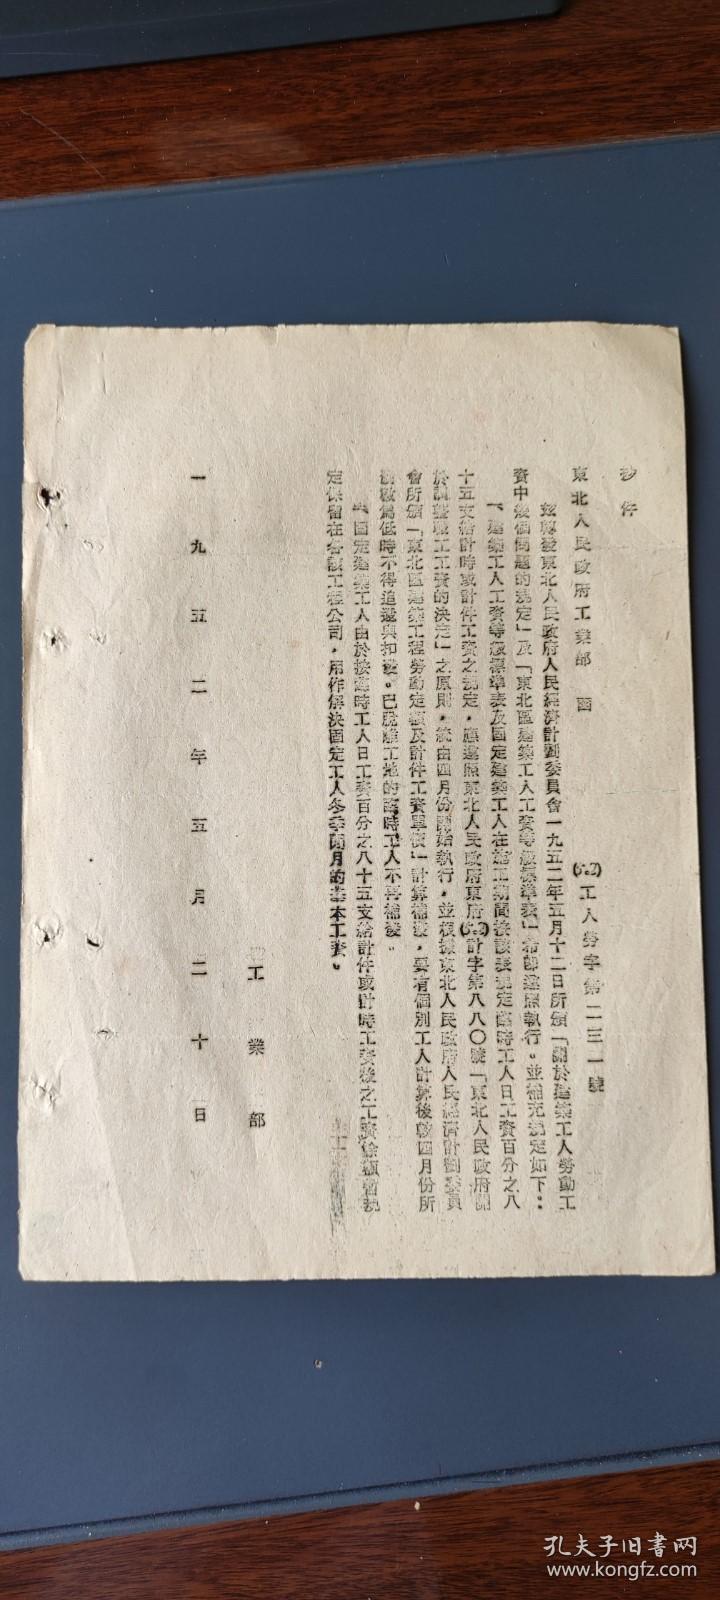 抄件
東北人民政府工業部 函
(5.2)工人勞字第二三一號
茲轉發東北人民政府人民經濟計劃委員會一九五二年五月十二日所頒「關於建築工人勞動工
資中幾個問題的規定」及「東北區建築工人工資等級標準表」希即遵照執行。並補充規定如下：
一、建築工人工資等級標準表及固定建築工人在施工期間按該表規定臨時工人日工資百分之八
十五支給計時或計件工資之規定，應遵照東北人民政府東府(5.2)計字第八八〇號「東北人民政府關
於調整職工工資的決定」之原則，統由四月份開始執行，並根據東北人民政府人民經濟計劃委員
會所頒「東北區建築工程勞動定額及計件工資單價」計算補發，要有個別工人計算後較四月份所
發較爲低時不得追還與扣發。已脫離工地的臨時工人不再補發。
固定建築工人由於按臨時工人日工資百分之八十五支給計件或計時工資後之工資餘額暫規
定保留在各該工程公司，用作解決固定工人冬季兩月的基本工資。
工業部
一九五二年五月二十日
孔夫子旧書网
www.kongfz.com